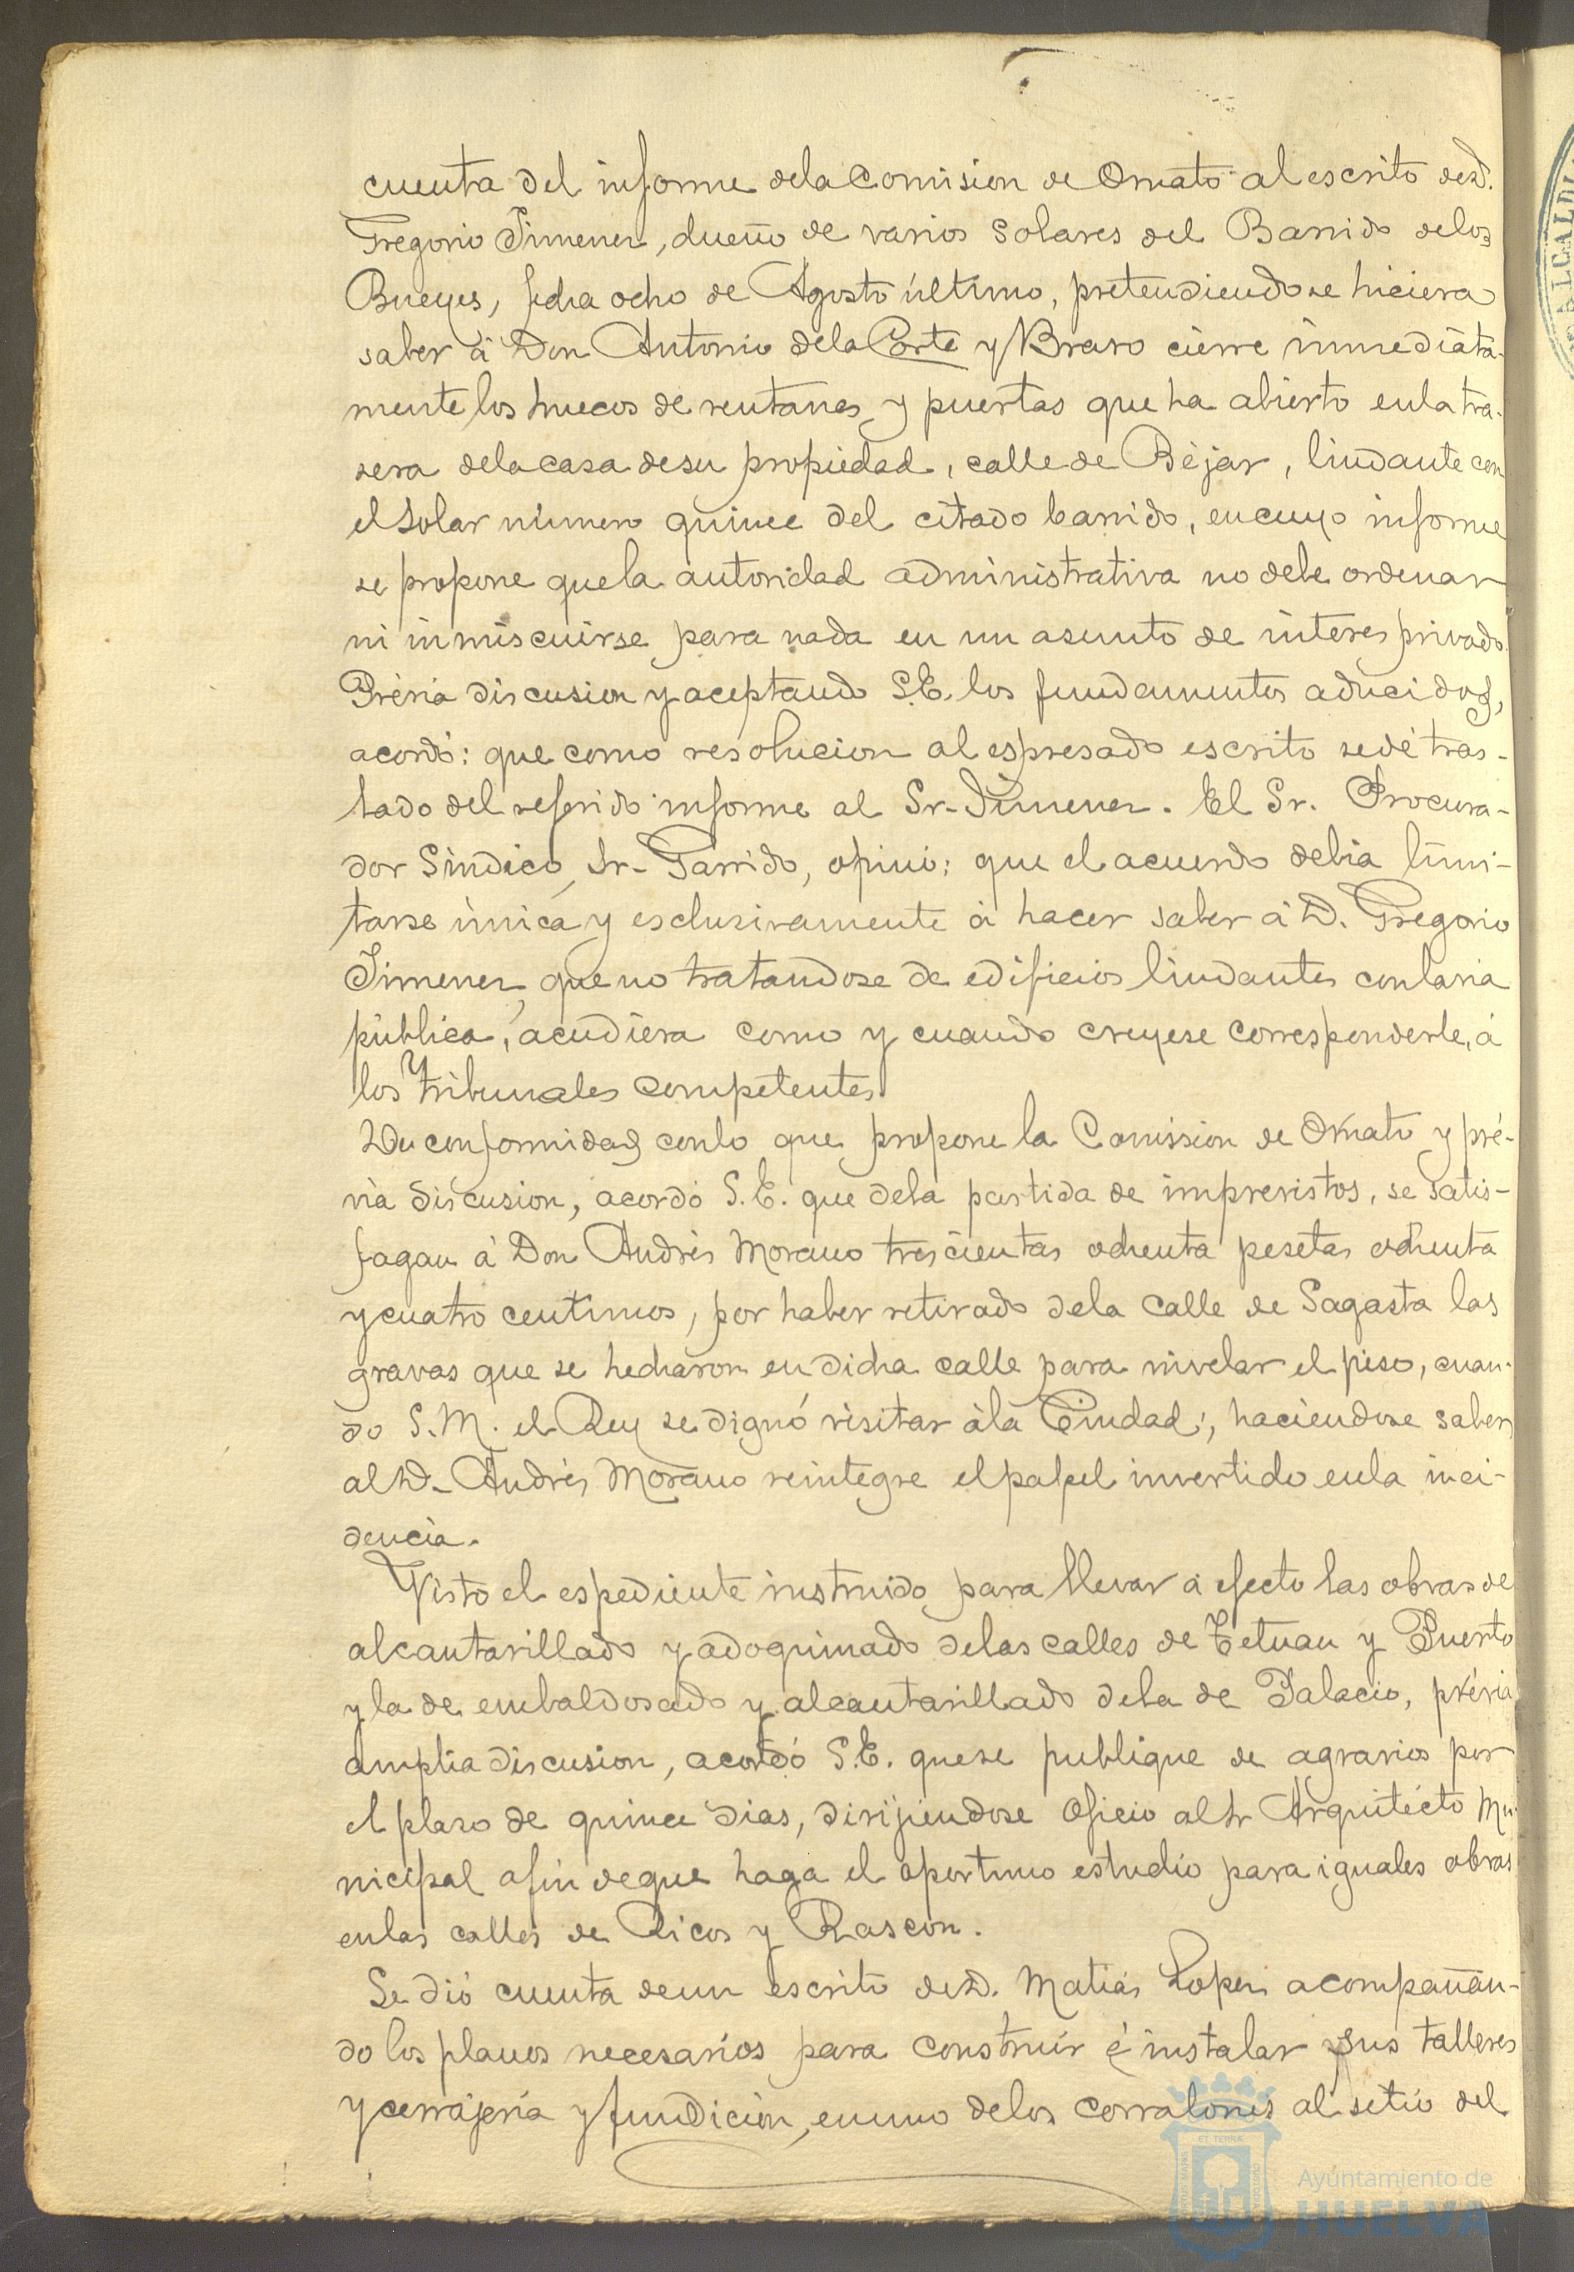 cuenta del informe dela Comision de Ornato al escrito de D.
Gregorio Jimenez, dueño de varios solares del Barrido delos
Bueyes, fecha ocho de Agosto último, pretendiendo se hiciera
saber á Don Antonio dela Corte y Bravo cierre inmediata-
mente los huecos de ventanas y puertas que ha abierto enla tra-
sera dela casa desu propiedad, calle de Béjar, lindante con
el solar número quince del citado barrido, encuyo informe
se propone quela autoridad administrativa no debe ordenar
ni inmiscuirse para nada en un asunto de interes privado.
Prévia discusion y aceptando S.E. los fundamentos aducidos,
acordó: que como resolucion al espresado escrito se dé tras-
lado del referido informe al Sr. Jimenez. El Sr. Procura-
dor Síndico, Sr. Garrido, opinó: que el acuerdo debia limi-
tarse única y esclusivamente á hacer saber á D. Gregorio
Jimenez, que no tratandose de edificios lindantes conlavia
pública, acudiera como y cuando creyese corresponderle, á
los Tribunales competentes.
De conformidad conlo que propone la Comision de Ornato y pré-
via discusion, acordó S.E. que dela partida de imprevistos, se satis-
fagan á Don Andrés Morano trescientas ochenta pesetas ochenta
y cuatro centimos, por haber retirado dela calle de Sagasta las
gravas que se hecharon en dicha calle para nivelar el piso, cuan-
do S.M. el Rey se dignó visitar ála Ciudad; haciendose saber
al D. Andrés Morano reintegre el papel invertido enla inci-
dencia.
Visto el espediente instruido para llevar á efecto las obras de
alcantarillado y adoquinado delas calles de Tetuan y Puerto
y la de embaldosado y alcantarillado dela de Palacio, prévia
amplia discusion, acordó S.E. quese publique de agravios por
el plazo de quince dias, dirijiendose oficio al Sr Arquitécto Mu-
nicipal afin deque haga el oportuno estudio para iguales obras
enlas calles de Ricos y Rascon.
Se dió cuenta deun escrito de D. Matias Lopez acompañan-
do los planos necesarios para construir é instalar sus talleres
y cerrajería y fundición, enuno delos corralones al sitio del
ALCALDI
ET TERRÆ
Ayuntamiento de
HUELVA